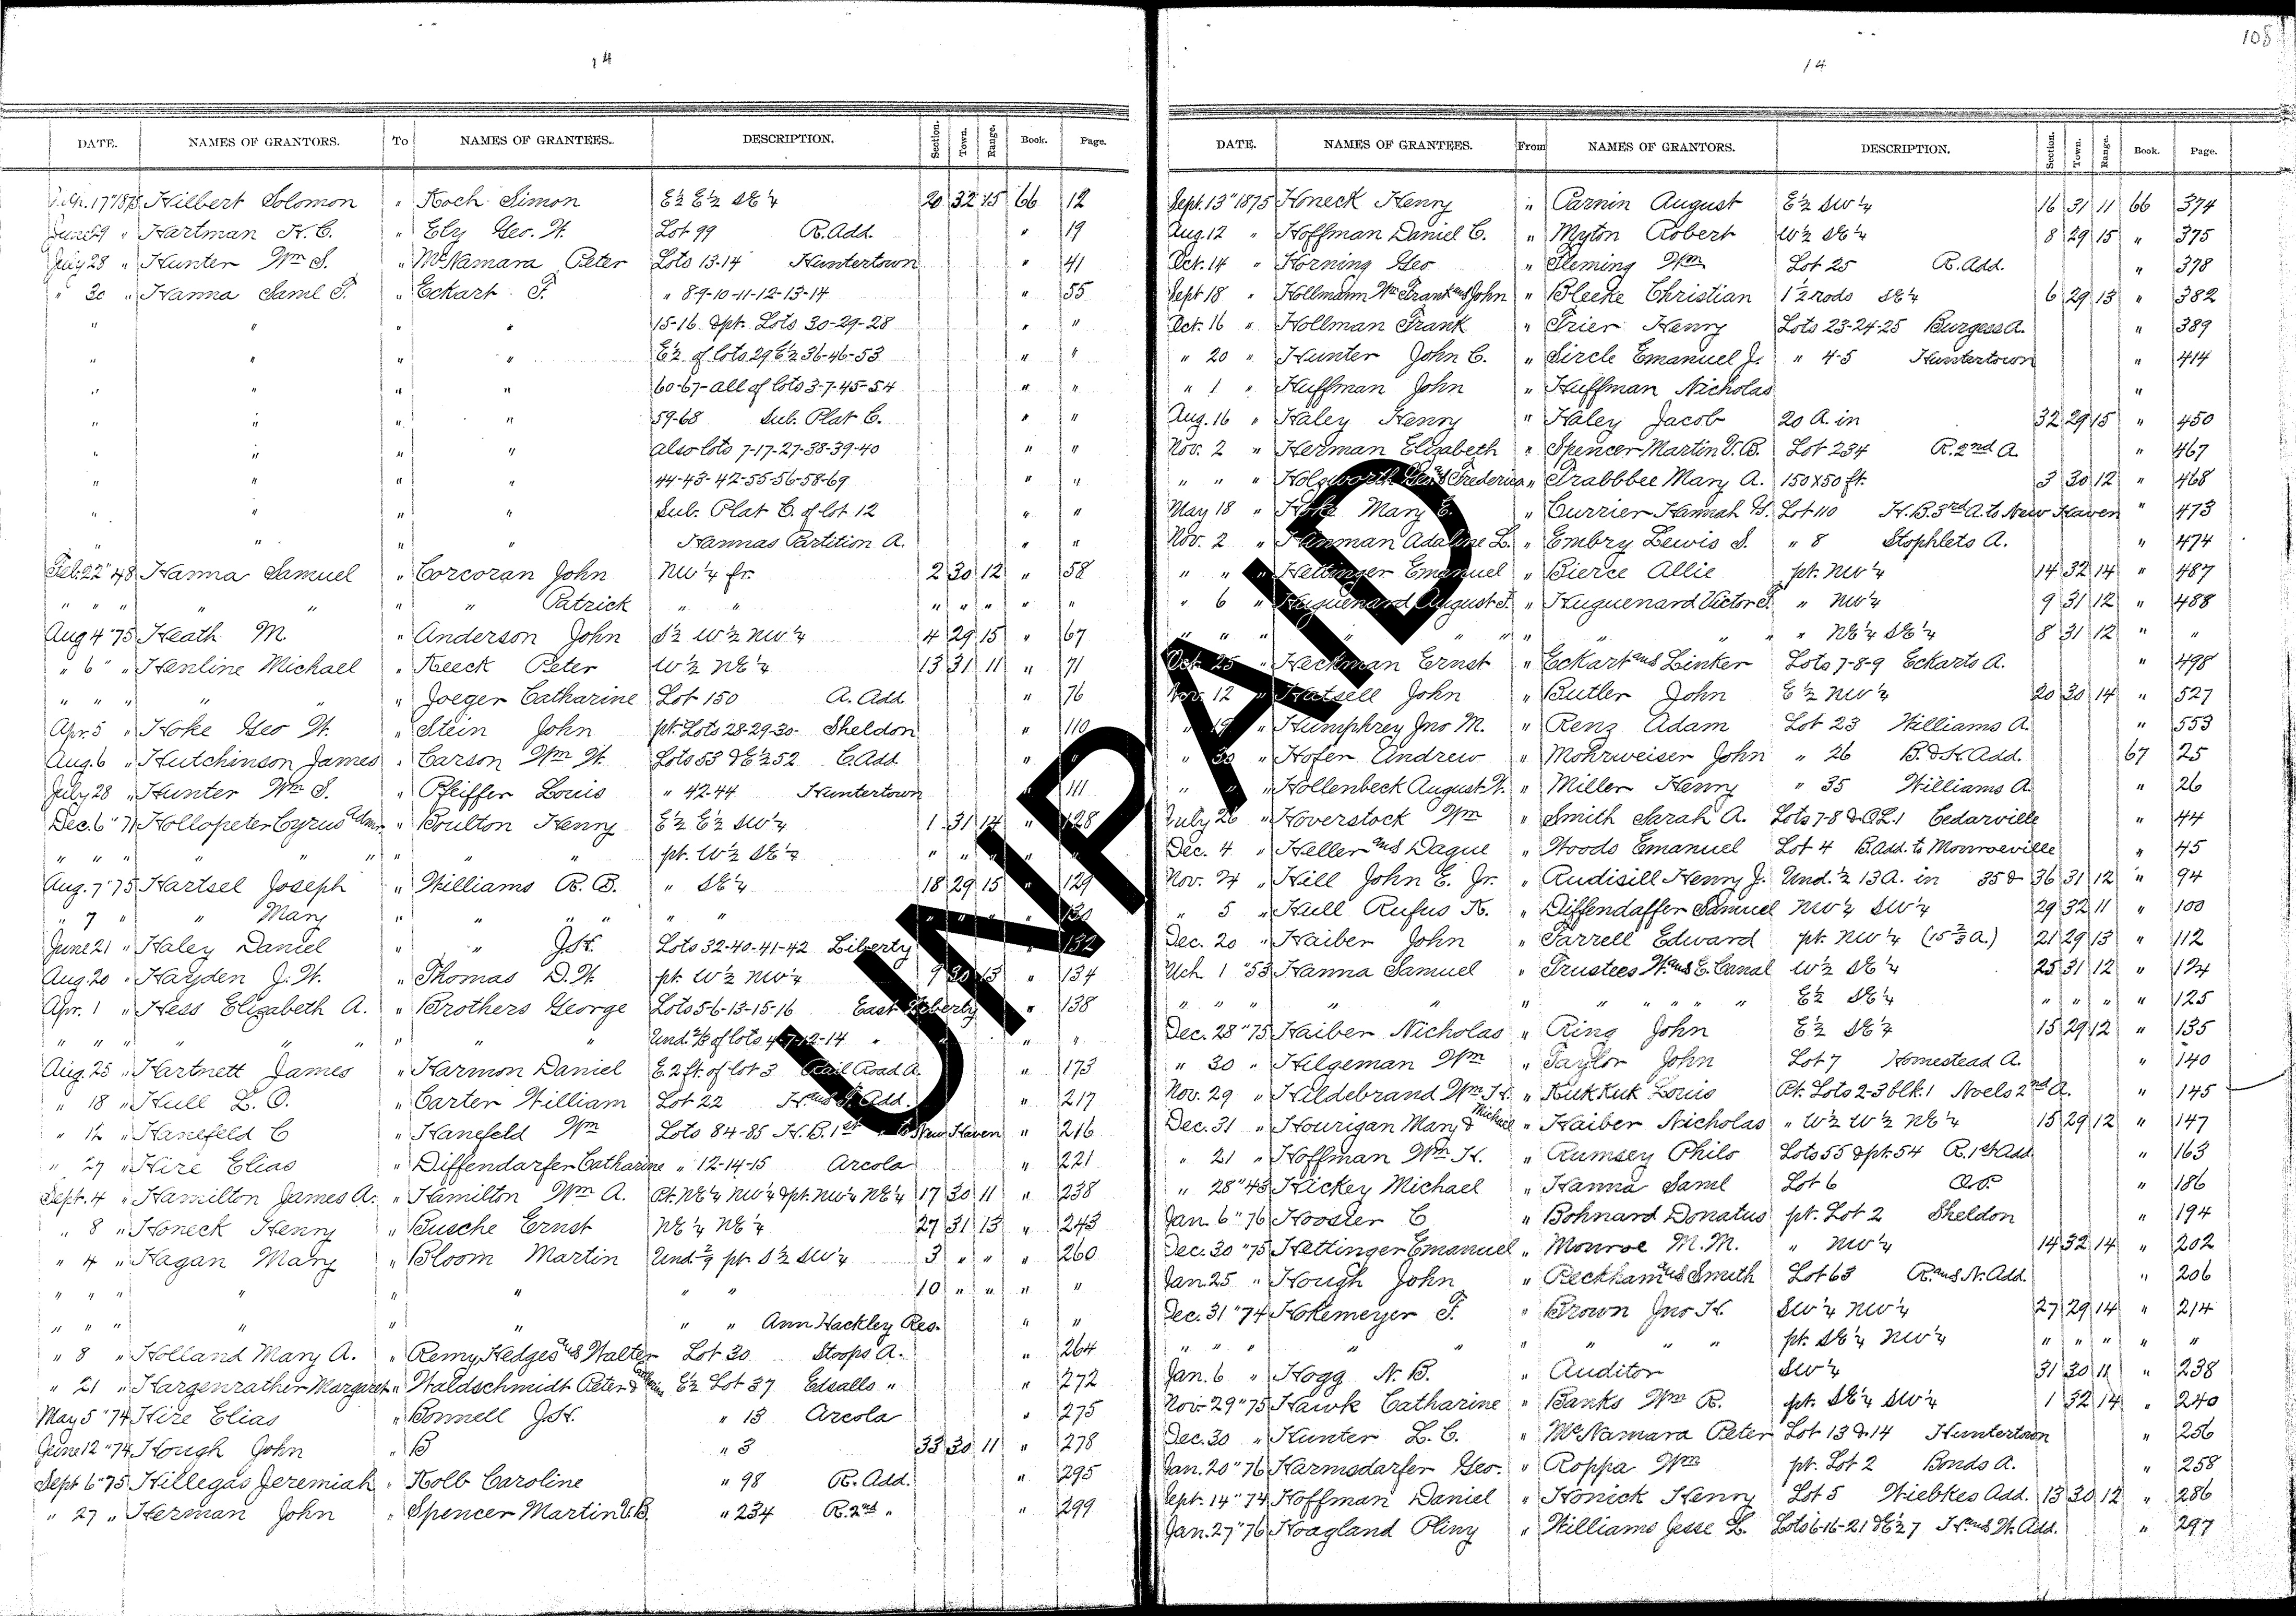 108
14
14
DATE. NAMES OF GRANTORS. To NAMES OF GRANTEES. DESCRIPTION. Section. Town. Range. Book. Page.
17" 1875 Hilbert Solomon " Koch Simon E½ E½ SE¼ 20 32 15 66 12
June 29 " Hartman H. C. " Ely Geo. W. Lot 99 R. Add. " 19
July 28 " Hunter Wm S. " McNamara Peter Lots 13-14 Huntertown " 41
" 30 " Hanna Saml T. " Eckart F. " 8-9-10-11-12-13-14 " 55
" " " 15-16 & pt. Lots 30-29-28 " "
" " " E½ of lots 29 E½ 36-46-53 " "
" " " 60-67-all of lots 3-7-45-54 " "
" " " 59-68 Sub. Plat C. " "
" " " also lots 7-17-27-38-39-40 " "
" " " 44-43-42-55-56-58-69 " "
" " " Sub. Plat C. of lot 12 " "
" " " Hannas Partition A. " "
Feb. 22" 48 Hanna Samuel " Corcoran John NW¼ fr. 2 30 12 " 58
" " " " " " " Patrick " " " " " " "
Aug 4" 75 Heath M. " Anderson John S½ W½ NW¼ 4 29 15 " 67
" 6 " Henline Michael " Keeck Peter W½ NE¼ 13 31 11 " 71
" " " " " " Joeger Catharine Lot 150 A. Add " 76
Apr. 5 " Hoke Geo W. " Stein John pt. Lots 28-29-30- Sheldon " 110
Aug. 6 " Hutchinson James " Carson Wm W. Lots 53 & E½ 52 C. Add " "
July 28 " Hunter Wm S. " Pfeiffer Louis " 42-44 Huntertown " 111
Dec. 6" 71 Hollopeter Cyrus Admr " Boulton Henry E½ E½ SW¼ 1 31 14 " 128
" " " " " " " " pt. W½ SE¼ " " " "
Aug. 7" 75 Hartsel Joseph " Williams R. B. " SE¼ 18 29 15 " 129
" 7 " " Mary " " " " " " " " " " 130
June 21 " Haley Daniel " " J. H. Lots 32-40-41-42 Liberty 132
Aug. 20 " Hayden J. W. " Thomas D. W. pt. W½ NW¼ 9 30 13 " 134
Apr. 1 " Hess Elizabeth A. " Brothers George Lots 5-6-13-15-16 East Liberty " 138
" " " " " " " Und. ⅔ of lots 4-7-12-14 " " "
Aug. 25 " Hartnett James " Harmon Daniel E. 2 ft. of lot 3 Rail Road A. " 173
" 18 " Hull L. O. " Carter William Lot 22 Add. " 217
" 12 " Hanefeld C " Hanefeld Wm Lots 84-85 H. B. 1st to New Haven " 216
" 27 " Hire Elias " Diffendarfer Catharine " 12-14-15 Arcola " 221
Sept. 4 " Hamilton James A. " Hamilton Wm A. Pt. NE¼ NW¼ & pt. NW¼ NE¼ 17 30 11 " 238
" 8 " Honeck Henry " Busche Ernst NE¼ NE¼ 27 31 13 " 243
" 4 " Hagan Mary " Bloom Martin Und. 2/9 pt. S½ SW¼ 3 " " " 260
" " " " " " " " 10 " " " "
" " " " " " " " Ann Hackley Res. " "
" 8 " Holland Mary A. " Remy, Hedges and Walter Lot 30 Stoops A. " 264
" 21 " Hargenrather Margaret " Waldschmidt Peter & E½ Lot 37 Edsalls " " 272
May 5" 74 Hire Elias " Bonnell J. H. " 13 Arcola " 275
June 12" 74 Hough John " B " 3 33 30 11 " 278
Sept 6" 75 Hillegas Jeremiah " Kolb Caroline " 98 R. Add. " 295
" 27 " Herman John " Spencer Martin V. B. " 234 R. 2nd " " 299
DATE. NAMES OF GRANTEES. From NAMES OF GRANTORS. DESCRIPTION. Section. Town. Range. Book. Page.
Sept. 13" 1875 Honeck Henry " Parnin August E½ SW¼ 16 31 11 66 374
Aug. 12 " Hoffman Daniel C. " Myton Robert W½ SE¼ 8 29 15 " 375
Oct. 14 " Horning Geo " Fleming Wm Lot 25 R. Add. " 378
Sept 18 " Hollmann Wm Frank and John " Bleeke Christian 1½ rods SE¼ 6 29 13 " 382
Oct. 16 " Hollman Frank " Trier Henry Lots 23-24-25 Burgess A. " 389
" 20 " Hunter John C. " Sircle Emanuel J. " 4-5 Huntertown " 414
" 1 " Huffman John " Huffman Nicholas "
Aug. 16 " Haley Henry " Haley Jacob 20 A. in 32 29 15 " 450
Nov. 2 " Herman Elizabeth " Spencer Martin V. B. Lot 234 R. 2nd A. " 467
" " " Holsworth Geo. & Frederica " Trabbbee Mary A. 150x50 ft. 3 30 12 " 468
May 18 " Hoke Mary E. " Currier Hannah G. Lot 110 H. B. 3rd A. to New Haven " 473
Nov. 2 " Hinman Adaline L. " Embry Lewis S. " 8 Stophlets A. " 474
" " " Hettinger Emanuel " Pierce Allie pt. NW¼ 14 32 14 " 487
" 6 " Huguenard August F. " Huguenard Victor F. " NW¼ 9 31 12 " 488
" " " " " " " " " NE¼ SE¼ 8 31 12 " "
Oct. 25 " Heckman Ernst " Eckart and Linker Lots 7-8-9 Eckarts A. " 498
Nov. 12 " Hatsell John " Butler John E½ NW¼ 20 30 14 " 527
" 19 " Humphrey Jno M. " Renz Adam Lot 23 Williams A. " 553
" 30 " Hofer Andrew " Mohrweiser John " 26 B. & H. Add. 67 25
" " " Hollenbeck August W. " Miller Henry " 35 Williams A. " 26
July 26 " Hoverstock Wm " Smith Sarah A. Lots 7-8 & O.L. 1 Cedarville " 44
Dec. 4 " Heller and Dague " Woods Emanuel Lot 4 B. Add. to Monroeville " 45
Nov. 24 " Hill John E. Jr. " Rudisill Henry J. Und. ½ 13 A. in 35 & 36 31 12 " 94
" 5 " Hull Rufus K. " Diffendaffer Samuel NW¼ SW¼ 29 32 11 " 100
Dec. 20 " Haiber John " Farrell Edward pt. NW¼ (15⅔ a.) 21 29 13 " 112
Mch. 1" 53 Hanna Samuel " Trustees W. and E. Canal W½ SE¼ 25 31 12 " 124
" " " " " " " " " " E½ SE¼ " " " " 125
Dec. 28" 75 Haiber Nicholas " Ring John E½ SE¼ 15 29 12 " 135
" 30 " Hilgeman Wm " Taylor John Lot 7 Homestead A. " 140
Nov. 29 " Hildebrand Wm H. " Kukkuk Louis Pt. Lots 2-3 blk. 1 Noels 2nd A. " 145
Dec. 31 " Hourigan Mary & Michael " Haiber Nicholas " W½ W½ NE¼ 15 29 12 " 147
" 21 " Hoffman Wm H. " Rumsey Philo Lots 55 & pt. 54 R. 1st Add " 163
" 28" 43 Hickey Michael " Hanna Saml Lot 6 O.P. " 186
Jan. 6" 76 Hooster C " Bohnard Donatus pt. Lot 2 Sheldon " 194
Dec. 30" 75 Hettinger Emanuel " Monroe M. M. " NW¼ 14 32 14 " 202
Jan. 25 " Hough John " Peckham and Smith Lot 63 R. and N. Add. " 206
Dec. 31" 74 Hokemeyer F. " Brown Jno H. SW¼ NW¼ 27 29 14 " 214
" " " " " " " " pt. SE¼ NW¼ " " " " "
Jan. 6 " Hogg N. B. " Auditor SW¼ 31 30 11 " 238
Nov. 29" 75 Hawk Catharine " Banks Wm R. pt. SE¼ SW¼ 1 32 14 " 240
Dec. 30 " Hunter L. C. " McNamara Peter Lot 13 & 14 Huntertown " 256
Jan. 20" 76 Harmsdarfer Geo. " Roppa Wm pt. Lot 2 Bonds A. " 258
Sept. 14" 74 Hoffman Daniel " Honick Henry Lot 5 Wiebkes Add. 13 30 12 " 286
Jan. 27" 76 Hoagland Pliny " Williams Jesse L. Lots 6-16-21 & E½ 7 H. and W. Add. " 297
UNPAID